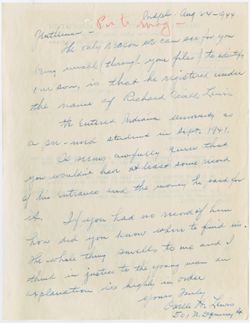 Indpls - Aug. 24 - 1944
Gentlemen -
The only reason we can see for you
being unable (through your files) to identify
our son, is that he registered under
the name of Richard Lewis
He entered Indiana University as
a pre-med student in Sept. 1941.
It seems awfully queer that
you wouldn't have at least some record
of his entrance and the money he paid for
it.
If you had no record of him
how did you know where to find us.
The whole thing smells to me and I
think in justice to the young man an
explanation is highly in order
Yours truly
Lewis